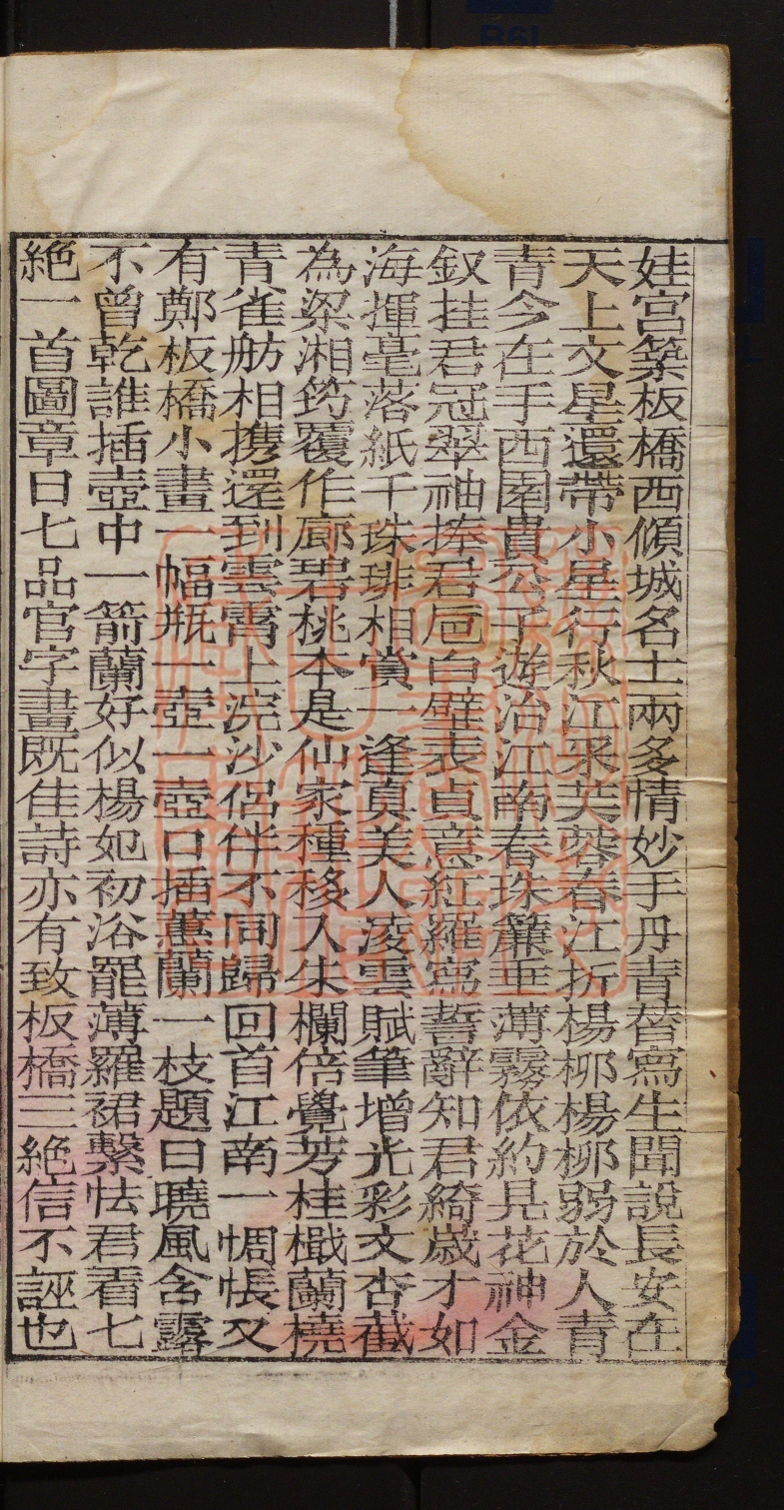 娃宮築板橋西傾城名士兩多情妙手丹青替寫生聞說長安在
天上文星還帶小星行秋江采芙蓉春江折楊柳楊柳弱於人青
青今在手西園貴公子遊冶江南春珠簾垂薄霧依約見花神金
釵挂君冠翠袖捧君卮白璧表貞意紅羅寫誓辭知君綺歲才如
海揮毫落紙千珠琲相賞一逢真美人淩雲賦筆增光彩文杏截
為梁湘筠覆作廊碧桃本是仙家種移入朱欄倍覺芳桂檝蘭橈
青雀舫相携還到雲霄上浣沙侶伴不同歸回首江南一惆悵又
有鄭板橋小畫一幅瓶一壺一壺口插蕙蘭一枝題曰曉風含露
不曾乾誰插壺中一箭蘭好似楊妃初浴罷薄羅裙繫怯君看七
絶一首圖章曰七品官字畫既佳詩亦有致板橋三絶信不誣也